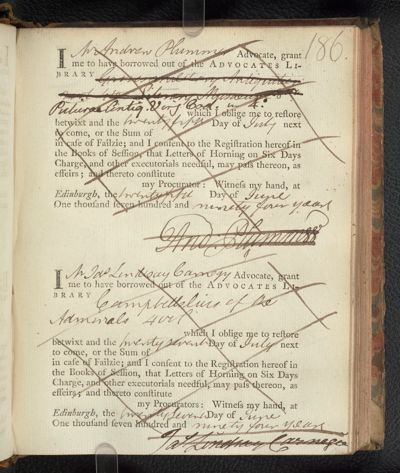 186.
I Mr Andrew Plummer Advocate, grant
me to have borrowed out of the ADVOCATES LI-
BRARY
which I oblige me to restore
betwixt and the twenty fifth Day of July next
to come, or the Sum of
in case of Failzie; and I consent to the Registration hereof in
the Books of Session, that Letters of Horning on Six Days
Charge, and other executorials needful, may pass thereon, as
effeirs; and thereto constitute
my Procurator: Witness my hand, at
Edinburgh, the twenty fifth Day of June
One thousand seven hundred and ninety four years
And. Plummer
I Mr Jas Lindsay Carnegy Advocate, grant
me to have borrowed out of the ADVOCATES LI-
BRARY
Campbells lives of the
Admirals 4 vol
which I oblige me to restore
betwixt and the twenty seventh Day of July next
to come, or the Sum of
in case of Failzie; and I consent to the Registration hereof in
the Books of Session, that Letters of Horning on Six Days
Charge, and other executorials needful, may pass thereon, as
effeirs; and thereto constitute
my Procurators: Witness my hand, at
Edinburgh, the twenty seventh Day of June
One thousand seven hundred and ninety four years
Jas Lindsay Carnegy